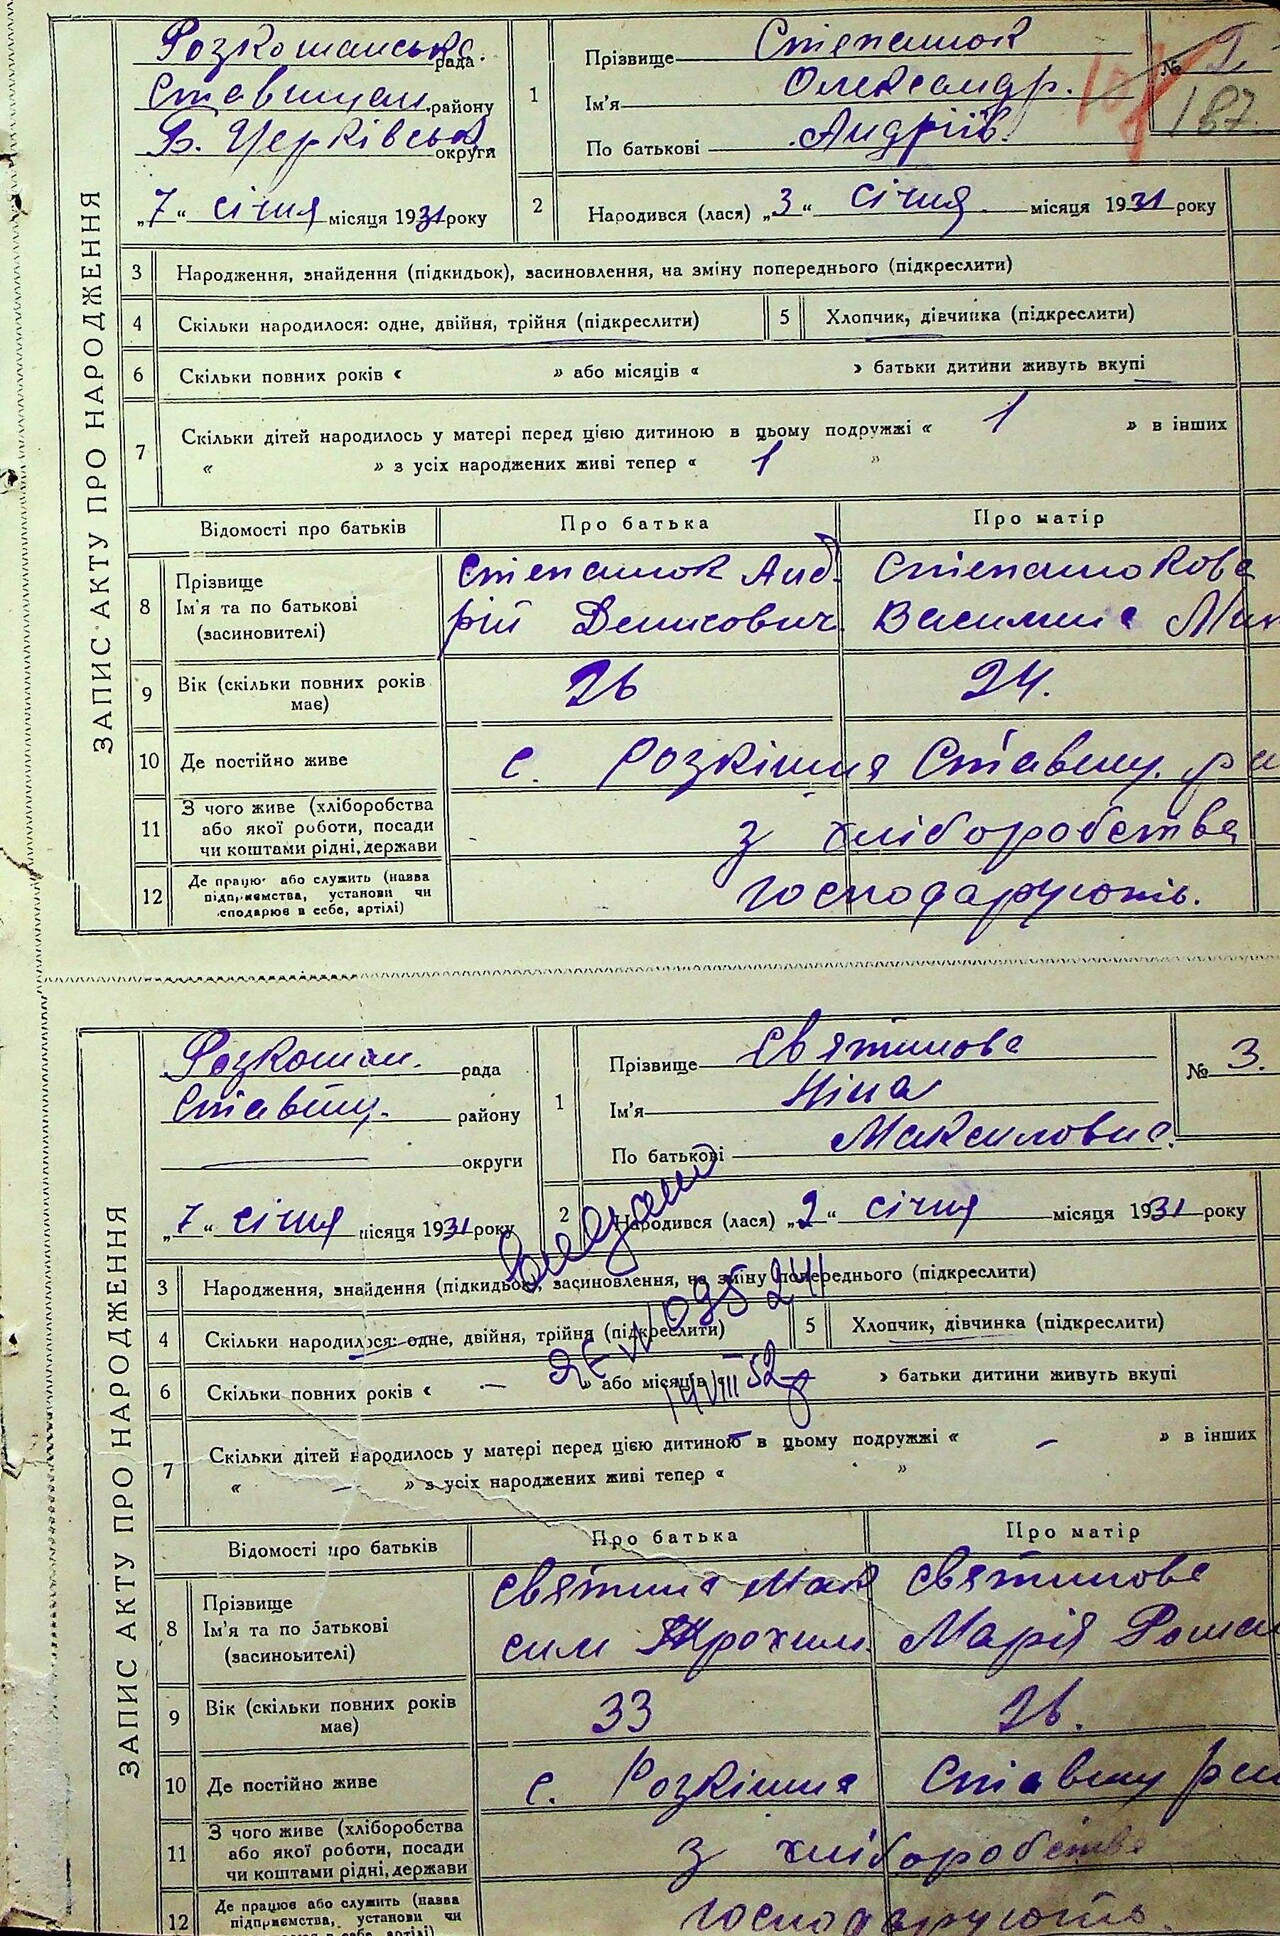 ЗАПИС АКТУ ПРО НАРОДЖЕННЯ
Розкошанська рада.
Ставищан. району
Б. Церківськ. округи
„7“ січня місяця 1931 року
1
Прізвище Степанюк
Ім'я Олександр.
По батькові Андріїв.
№ 2
107
187.
2 Народився (лася) „3“ січня місяця 1931 року
3 Народження, знайдення (підкидьок), засиновлення, на зміну попереднього (підкреслити)
4 Скільки народилося: одне, двійня, трійня (підкреслити) 5 Хлопчик, дівчинка (підкреслити)
6 Скільки повних років « » або місяців « » батьки дитини живуть вкупі
7 Скільки дітей народилось у матері перед цією дитиною в цьому подружжі « 1 » в інших
« » з усіх народжених живі тепер « 1 »
Відомості про батьків Про батька Про матір
8 Прізвище
Ім'я та по батькові
(засиновителі)
Степанюк Анд-
рій Денисович
Степанюкова
Василина
9 Вік (скільки повних років має) 26 24.
10 Де постійно живе с. Розкішня Ставищ.
11 З чого живе (хліборобства
або якої роботи, посади
чи коштами рідні, держави
з хліборобства
12 Де працює або служить (назва
підприємства, установи чи
сподарює в себе, артілі)
Господарують.
ЗАПИС АКТУ ПРО НАРОДЖЕННЯ
Розкошан. рада
Ставищ. району
— округи
„7“ січня місяця 1931 року
1
Прізвище Святинова
Ім'я Ніна
По батькові Максимовна.
№ 3.
2 Народився (лася) „2“ січня місяця 1931 року
3 Народження, знайдення (підкидьок), засиновлення, на зміну попереднього (підкреслити)
4 Скільки народилося: одне, двійня, трійня (підкреслити) 5 Хлопчик, дівчинка (підкреслити)
6 Скільки повних років « — » або місяців « — » батьки дитини живуть вкупі
14 VIII 52
7 Скільки дітей народилось у матері перед цією дитиною в цьому подружжі « — » в інших
« — » з усіх народжених живі тепер « »
Відомості про батьків Про батька Про матір
8 Прізвище
Ім'я та по батькові
(засиновителі)
Святина Мак
сим Трохим.
Святинова
Марія
9 Вік (скільки повних років має) 33 26.
10 Де постійно живе с. Розкішня Ставищ
11 З чого живе (хліборобства
або якої роботи, посади
чи коштами рідні, держави
з хліборобства
12 Де працює або служить (назва
підприємства, установи чи
Господарують.